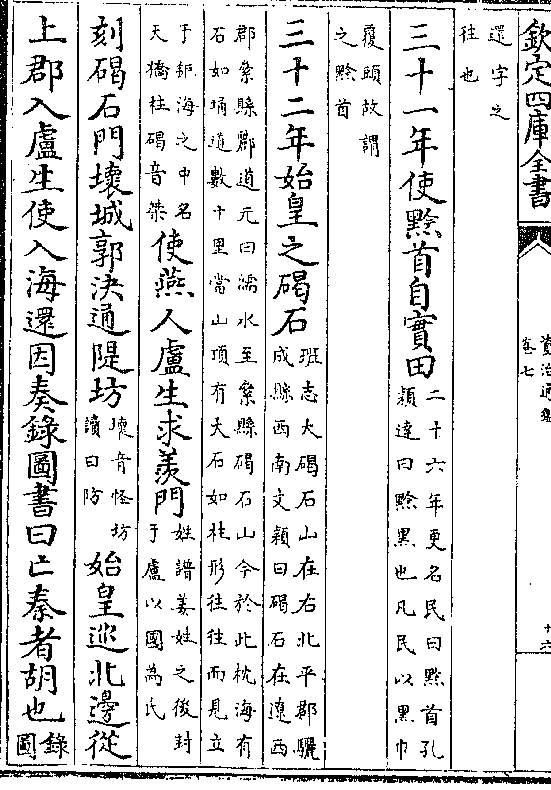 欽定四庫全書
資治通鑑
卷七
十六
還字之
往也
三十一年使黔首自實田二十六年更名民曰黔首孔
穎達曰黔黑也凡民以黑巾
覆頭故謂
之黔首
三十二年始皇之碣石班志大碣石山在右北平郡驪
成縣西南文穎曰碣石在遼西
郡絫縣酈道元曰濡水至絫縣碣石山今於此枕海有
石如埇道數十里當山頂有大石如柱形往往而見立
于鉅海之中名
天橋柱碣音桀使燕人盧生求羨門姓譜姜姓之後封
于盧以國為氏
刻碣石門壞城郭決通隄坊壞音怪坊
讀曰防始皇巡北邊從
上郡入盧生使入海還因奏錄圖書曰亡秦者胡也錄
圖